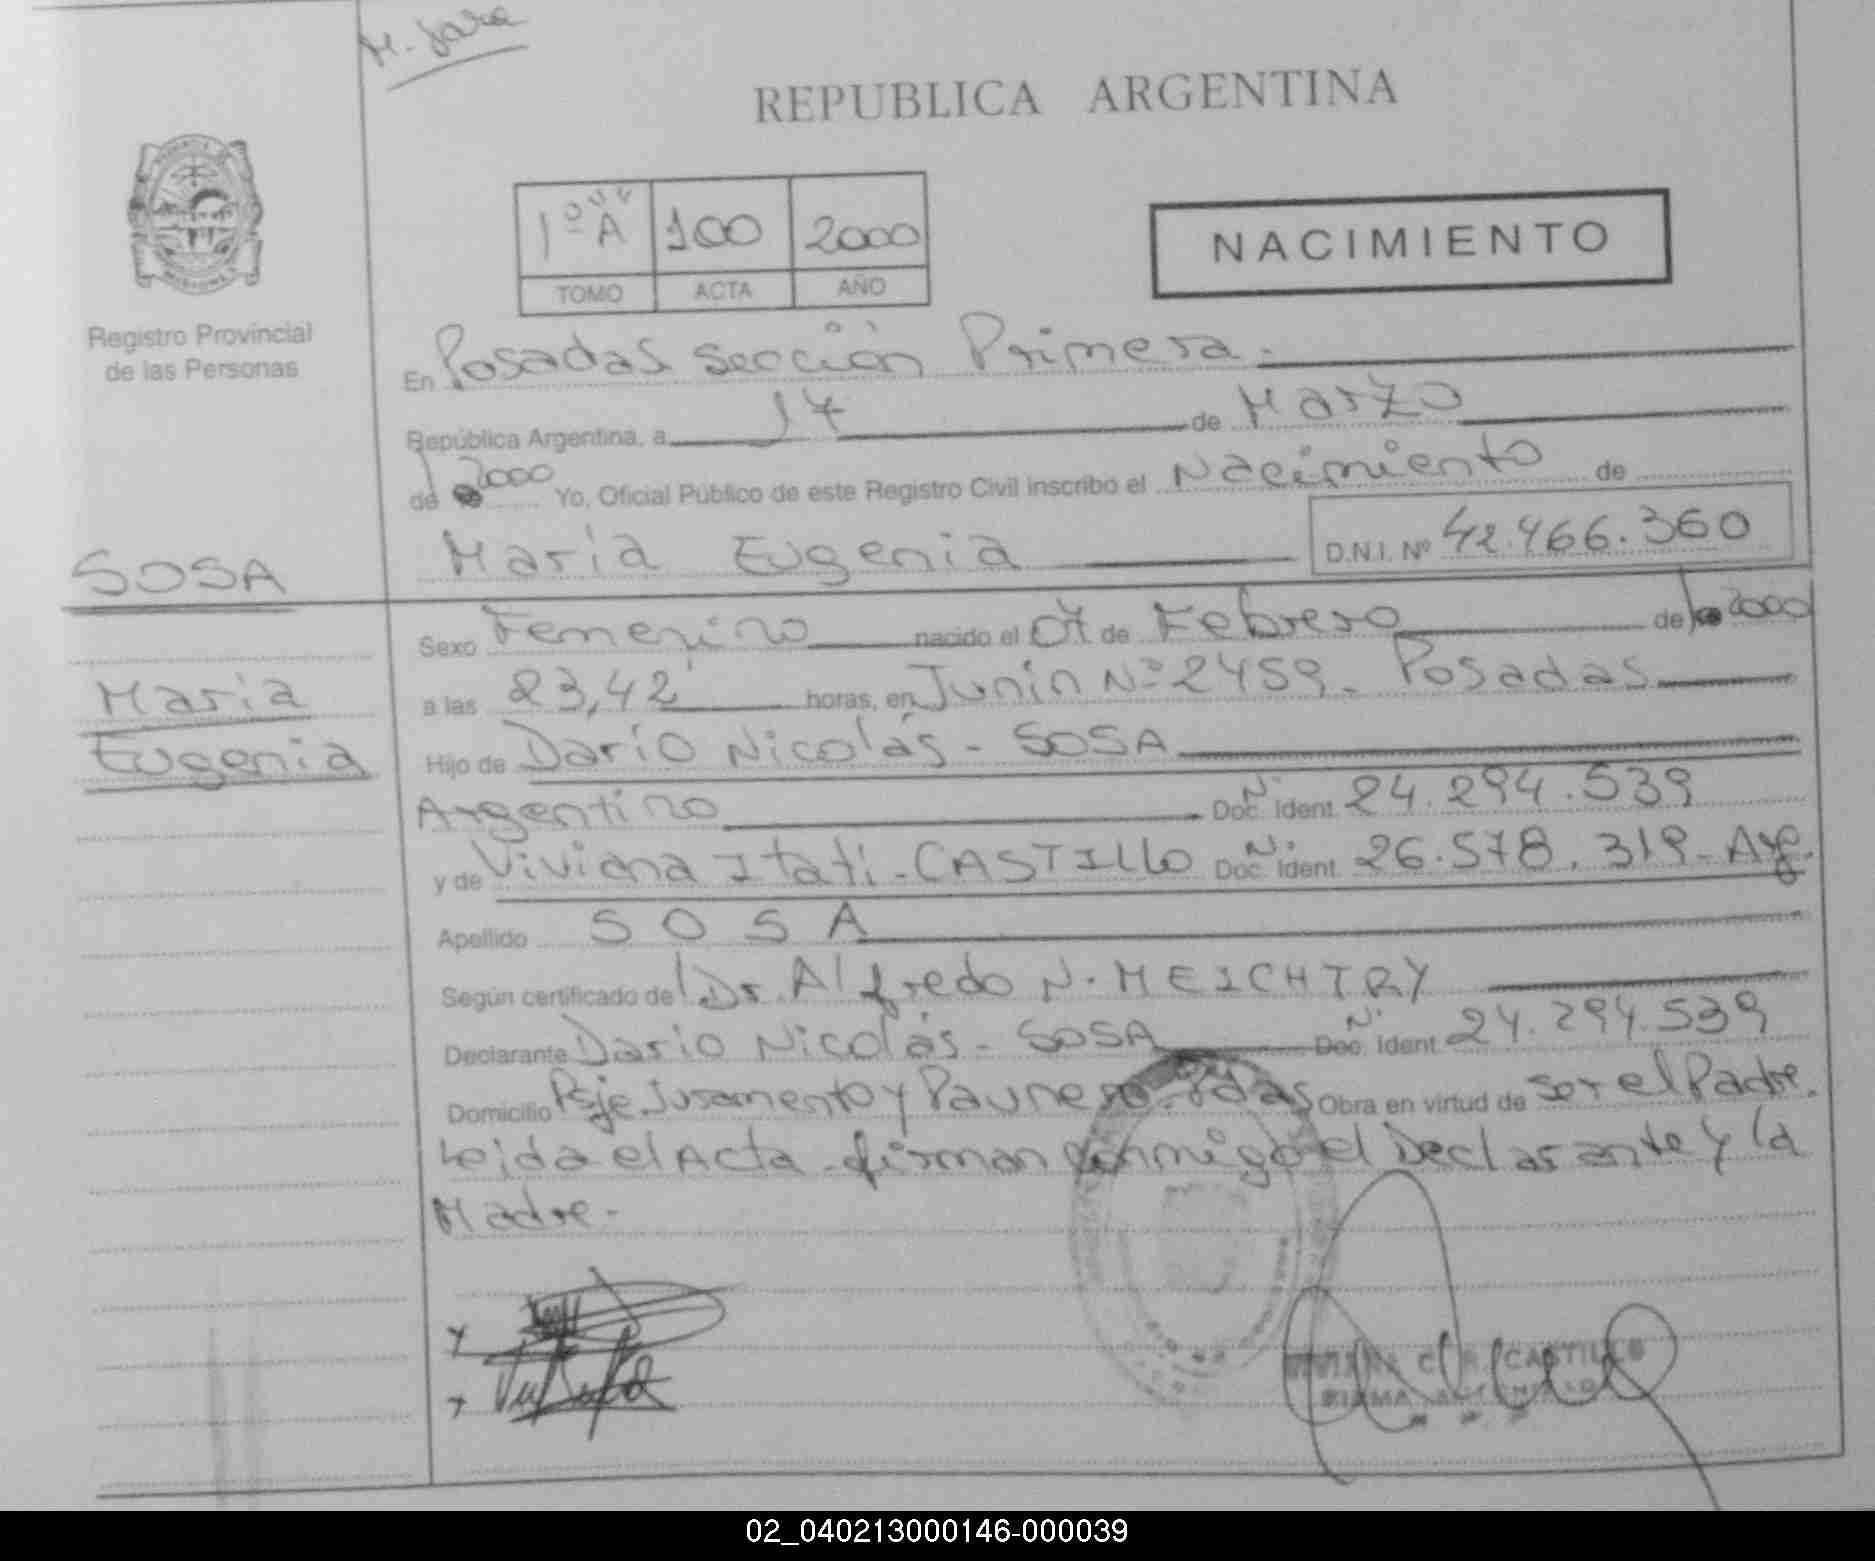 M. Jara
REPUBLICA ARGENTINA
1º A 100 2000
TOMO ACTA AÑO
NACIMIENTO
Registro Provincial
de las Personas
En Posadas Sección Primera.
República Argentina, a 17 de Marzo
de 2000 Yo, Oficial Público de este Registro Civil inscribo el Nacimiento de
María Eugenia D.N.I. Nº 42.466.360
SOSA
María
Eugenia
Sexo Femenino nacido el 07 de Febrero de 2000
a las 23,42 horas, en Junín Nº 2459 - Posadas
Hijo de Darío Nicolás - SOSA
Argentino Doc. Ident. Nº 24.294.539
y de Viviana Itatí - CASTILLO Doc. Ident. Nº 26.578.319 - Arg.
Apellido SOSA
Según certificado del Dr. Alfredo N. MEICHTRY
Declarante Darío Nicolás - SOSA Doc. Ident. Nº 24.294.539
Domicilio Psje Juramento y Paunero - Pdas Obra en virtud de ser el Padre.
Leida el Acta firman conmigo el Declarante y la
Madre -
CASTILLO
FIRMA
02_040213000146-000039